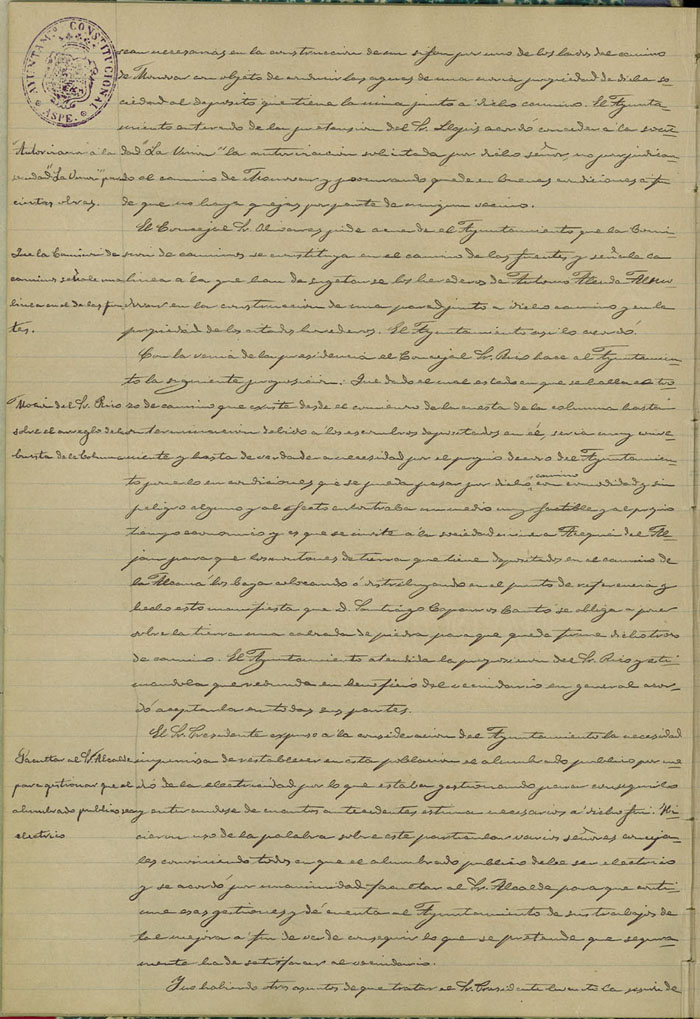 AYUNTAM. CONSTITUCIONAL
ASPE.
sean necesarias en la construccion de un sifon por uno de los lados del camino
de Monovar con objeto de conducir las aguas de una propiedad de dicha so-
ciedad al deposito que tiene la misma junto a dicho camino. El Ayunta-
miento enterado de la pretension del Sr. acordó conceder a la socie-
Autorizacion á la so-
dad "La Union" la autorizacion solicitada por dicho señor, no perjudican-
ciedad "La Union" para
do el camino de Monovar y procurando quede en buenas condiciones a fin
ciertas obras.
de que no haya quejas por parte de ningun vecino.
El Concejal Sr. Olivares pide acuerde el Ayuntamiento que la Comi-
Que la Comision de
sion de caminos se constituya en el camino de las fuentes y señale la
caminos señale una
linea á la que han de sujetarse los herederos de Antonio
linea en el de las fuen-
en la construccion de una pared junto a dicho camino y en la
tes.
propiedad de los citados herederos. El Ayuntamiento asi lo acordó.
Con la venia de la presidencia el Concejal Sr. Rico hace al Ayuntamien-
to la siguiente proposicion. Que dado el mal estado en que se halla el tro-
Mocion del Sr. Rico
zo de camino que existe desde el comienzo de la cuesta de la columna hasta
sobre el arreglo de la
su terminacion debido a los escombros depositados en él, seria muy conve-
cuesta de la Columna
niente y hasta de verdadera necesidad por el propio decoro del Ayuntamien-
camino
to ponerlo en condiciones que se pueda pasar por dicho con comodidad y sin
peligro alguno y al efecto encontraba un medio muy factible y al propio
tiempo economico y es que se invite a la sociedad minera Acequia del Al-
jau para que los montones de tierra que tiene depositados en el camino de
la los vaya colocando ó distribuyendo en el punto de referencia y
hecho esto manifiesta que D. Santiago Cantó se obliga a poner
sobre la tierra una calzada de piedra para que quede firme dicho trozo
de camino. El Ayuntamiento atendida la proposicion del Sr. Rico y esti-
mandola que redunda en beneficio del vecindario en general acor-
dó aceptarla en todas sus partes.
El Sr. Presidente expuso a la consideracion del Ayuntamiento la necesidad
Facultar al Sr. Alcalde
imperiosa de establecer en esta poblacion el alumbrado publico por me-
para gestionar que el
dio de la electricidad por lo que estaba gestionando para conseguirlo
alumbrado publico sea
y enterandose de cuantos antecedentes estima necesarios a dicho fin. Hi-
electrico
cieron uso de la palabra sobre este particular varios señores conceja-
les conviniendo todos en que el alumbrado publico debe ser electrico
y se acordó por unanimidad facultar al Sr. Alcalde para que conti-
nue esas gestiones y dé cuenta al Ayuntamiento de sus trabajos de
tal mejora á fin de ver de conseguir lo que se pretende que segura-
mente ha de satisfacer al vecindario.
Y no habiendo otros asuntos de que tratar el Sr. Presidente levantó la sesion de